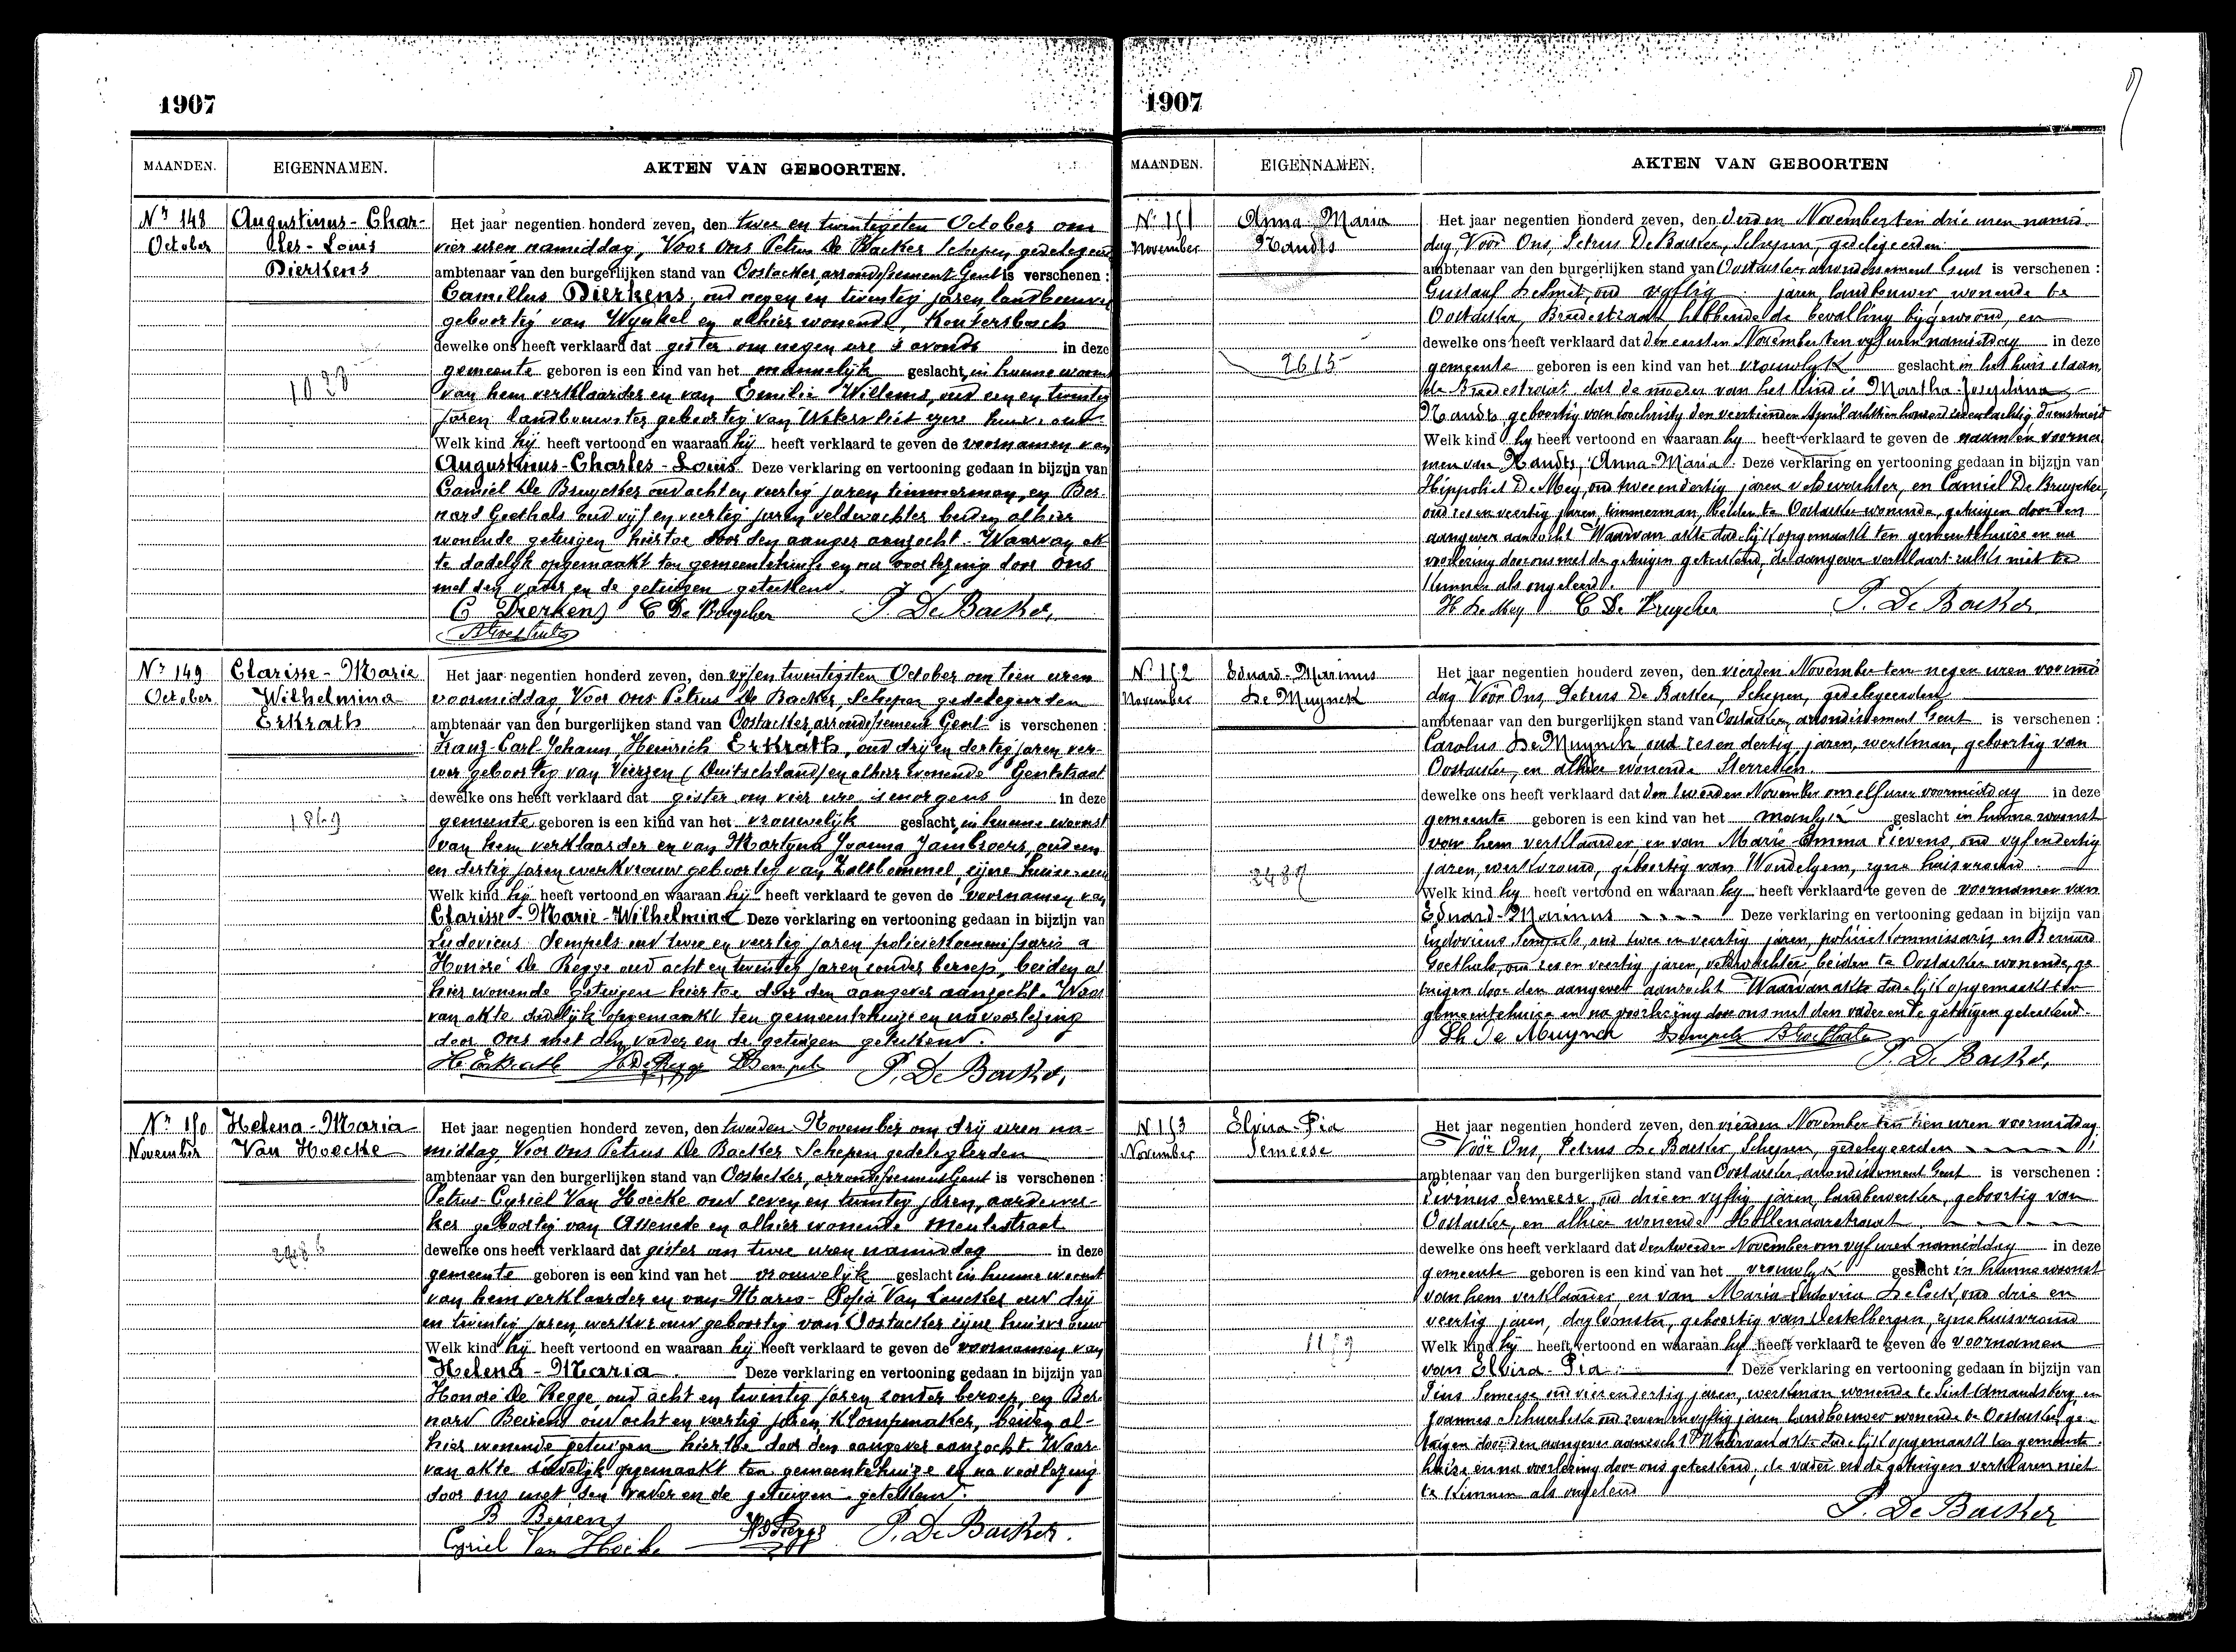 1907
MAANDEN. EIGENNAMEN. AKTEN VAN GEBOORTEN.
Nr 148
October
Augustinus-Char-
les-Louis
Dierkens
1023
Het jaar negentien honderd zeven, den twee en twintigsten October om
vier uren namiddag, Voor ons Petrus De Backer Schepen gedelegeerd
ambtenaar van den burgerlijken stand van Oostacker, arrondissement Gent is verschenen :
Camillus Dierkens, oud negen en twintig jaren landbouwer
geboortig van Wynkel en alhier wonende,
dewelke ons heeft verklaard dat gister om negen ure 's avonds in deze
gemeente geboren is een kind van het mannelijk geslacht, in hunne woonst
van hem verklaarder en van Emilie Willems, oud een en twintig
jaren landbouwster geboortig van zijne huisvrouw
Welk kind hij heeft vertoond en waaraan hij heeft verklaard te geven de voornamen van
Augustinus-Charles-Louis Deze verklaring en vertooning gedaan in bijzijn van
Camiel De Bruycker oud acht en veertig jaren timmerman, en Ber-
nard Goethals oud vijf en veertig jaren veldwachter beiden alhier
wonende getuigen hiertoe door den aangever aanzocht. Waarvan ak-
te dadelijk opgemaakt ten gemeentehuize en na voorlezing door ons
met den vader en de getuigen geteekend.
C Dierkens C De Bruycker P. De Backer,
B Goethals
Nr 149
October
Clarisse-Marie
Wilhelmina
Erkrath
1869
Het jaar negentien honderd zeven, den vijf en twintigsten October om tien uren
voormiddag Voor ons Petrus De Backer, Schepen gedelegeerden
ambtenaar van den burgerlijken stand van Oostacker, arrondissement Gent is verschenen :
Franz-Carl Johann Heinrich Erkrath, oud drij en dertig jaren ver-
wer geboortig van Vierzen (Duitschland) en alhier wonende Gentstraat
dewelke ons heeft verklaard dat gister om vier ure 's morgens in deze
gemeente geboren is een kind van het vrouwelijk geslacht, in hunne woonst
van hem verklaarder en van Martyna Joanna Jambroers, oud een
en dertig jaren werkvrouw geboortig van Zaltbommel, zijne huisvrouw
Welk kind hij heeft vertoond en waaraan hij heeft verklaard te geven de voornamen van
Clarisse-Marie-Wilhelmina Deze verklaring en vertooning gedaan in bijzijn van
Ludovicus Sempels oud twee en veertig jaren policiekommissaris
Honoré De Regge oud acht en twintig jaren zonder beroep, beiden al
hier wonende getuigen hiertoe door den aangever aanzocht. Waar
van akte dadelijk opgemaakt ten gemeentehuize en na voorlezing
door ons met den vader en de getuigen geteekend.
H. Erkrath H De Regge L Sempels P. De Backer,
Nr 150
November
Helena-Maria
Van Hoecke
Het jaar negentien honderd zeven, den tweeden November om drij uren na-
middag, Voor ons Petrus De Backer Schepen gedelegeerden
ambtenaar van den burgerlijken stand van Oostacker, arrondissement Gent is verschenen :
Petrus-Cyriel Van Hoecke oud zeven en twintig jaren, aardewer-
ker geboortig van Assenede en alhier wonende Meulestraat
dewelke ons heeft verklaard dat gister om twee uren namiddag in deze
gemeente geboren is een kind van het vrouwelijk geslacht in hunne woonst
van hem verklaarder en van Maria-Sofia Van Laecker oud drij
en twintig jaren, werkvrouw geboortig van Oostacker zijne huisvrouw
Welk kind hij heeft vertoond en waaraan hij heeft verklaard te geven de voornamen van
Helena-Maria. Deze verklaring en vertooning gedaan in bijzijn van
Honoré De Regge, oud acht en twintig jaren zonder beroep, en Ber-
nard Beirens oud acht en veertig jaren klompmaker, beiden al-
hier wonende getuigen hiertoe door den aangever aanzocht. Waar-
van akte dadelijk opgemaakt ten gemeentehuize en na voorlezing
door ons met den vader en de getuigen geteekend.
B Beirens H D Regge P. De Backer.
Cyriel Van Hoecke
1907
MAANDEN. EIGENNAMEN. AKTEN VAN GEBOORTEN
Nr 151
November
Anna-Maria
Naudts
2615
Het jaar negentien honderd zeven, den derden November ten drie uren namid-
dag, Voor Ons, Petrus De Backer, Schepen, gedeligeerden
ambtenaar van den burgerlijken stand van Oostacker, arrondissement Gent is verschenen :
Gustaaf De Smet, oud vyftig jaren, landbouwer, wonende te
Oostacker, Breedestraat, hebbende de bevalling bygewoond, en
dewelke ons heeft verklaard dat den eersten November ten vyf uren namiddag in deze
gemeente geboren is een kind van het vrouwlyk geslacht in het huis staan
de Breedestraat, dat de moeder van het kind is Martha-Josephina
Naudts, geboortig van Loochristy den veertienden April achttien honderd zevenentachtig, dienstmeid
Welk kind hy heeft vertoond en waaraan hy heeft verklaard te geven de naam en voorna
men van Naudts, Anna-Maria. Deze verklaring en vertooning gedaan in bijzijn van
Hippoliet De Mey, oud tweeendertig jaren veldwachter, en Camiel De Bruycker,
oud zes en veertig jaren, timmerman, beiden te Oostacker wonende, getuigen door den
aangever aanzocht Waarvan akte dadelijk opgemaakt ten gemeentehuize en na
voorlezing door ons met de getuigen geteekend, de aangever verklaart zulks niet te
kunnen als ongeleerd.
H De Mey C De Bruycker P. De Backer
Nr 152
November
Eduard-Marinus
De Muynck
2487
Het jaar negentien honderd zeven, den vierden November ten negen uren voormid
dag Voor Ons, Petrus De Backer, Schepen, gedelegeerden
ambtenaar van den burgerlijken stand van Oostacker, arrondissement Gent is verschenen :
Carolus De Muynck oud zes en dertig jaren, werkman, geboortig van
Oostacker, en alhier wonende Sterreken.
dewelke ons heeft verklaard dat den tweeden November om elf uren voormiddag in deze
gemeente geboren is een kind van het manlyk geslacht in hunne woonst
van hem verklaarder en van Marie-Emma Lievens, oud vyf en dertig
jaren, werkvrouw, geboortig van Wondelgem, zyne huisvrouw.
Welk kind hy heeft vertoond en waaraan hy heeft verklaard te geven de voornamen van
Eduard-Marinus Deze verklaring en vertooning gedaan in bijzijn van
Ludovicus Sempels, oud twee en veertig jaren, policiekommissaris en Bernard
Goethals, oud zes en veertig jaren, veldwachter beiden te Oostacker wonende, ge
tuigen door den aangever aanzocht Waarvan akte dadelijk opgemaakt ten
gemeentehuize en na voorlezing door ons met den vader en de getuigen geteekend.
Ch De Muynck Sempels B Goethals
P. De Backer,
Nr 153
November
Elvira-Pia
Semeese
Het jaar negentien honderd zeven, den vierden November ten tien uren voormiddag
Voor Ons, Petrus De Backer, Schepen, gedelegeerden
ambtenaar van den burgerlijken stand van Oostacker, arrondissement Gent is verschenen :
Livinus Semeese, oud drie en vyftig jaren, landbewerker, geboortig van
Oostacker, en alhier wonende Hollenaarstraat.
dewelke ons heeft verklaard dat den tweeden November om vyf uren namiddag in deze
gemeente geboren is een kind van het vrouwlyk geslacht in hunne woonst
van hem verklaarder, en van Maria-Ludovica De Cock, oud drie en
veertig jaren, dagloonster, geboortig van Destelbergen, zyne huisvrouw
Welk kind hij heeft vertoond en waaraan hy heeft verklaard te geven de voornamen
van Elvira-Pia Deze verklaring en vertooning gedaan in bijzijn van
Pius Semeese oud vier en dertig jaren, werkman wonende te Sint Amandsberg, en
Joannes oud zeven en vyftig jaren landbouwer wonende te Oostacker, ge-
tuigen door den aangever aanzocht Waarvan akte dadelijk opgemaakt ten gemeente
huize en na voorlezing door ons geteekend, de vader en de getuigen verklaren niet
te kunnen als ongeleerd
P. De Backer